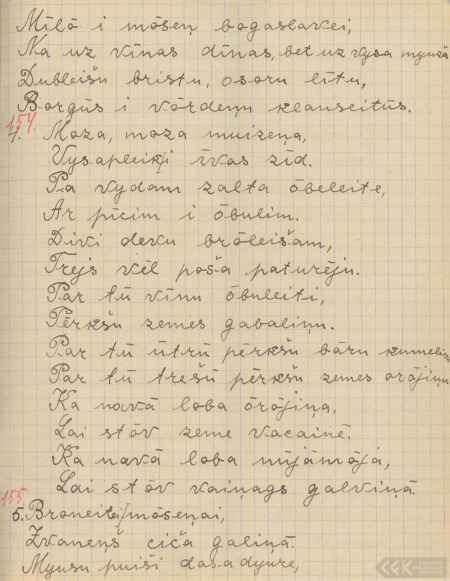 Mīlō i mōseņ bogaslavei,
Na uz vīnas dīnas, bet uz vysa myužā
Dubleišu bristu, osoru lītu,
Borgūs i vōrdeņu klauseitūs.
154.
4. Moza, moza muižeņa,
Vysapleik i īkas zīd.
Pa vydam zalta ōbeleite,
Ar pīcim i ōbulim.
Divi devu brōleišam,
Trejs vēl poša paturēju.
Par tū vīnu ōbuleiti,
Pērkšu zemes gabaliņu.
Par tū ūtrū pērkšu bāru kumeliņu
Par tū trešū pērkšu zemes orōjiņu
Ka navā loba ōrōjiņa,
Lai stōv zeme vacainē.
Ka navā loba ņūjāmōja,
Lai stōv vaiņags galviņā.
155.
5. Broneite mōseņai,
Zvaneņš ciča galiņā.
Myusu puiši dasadyure,